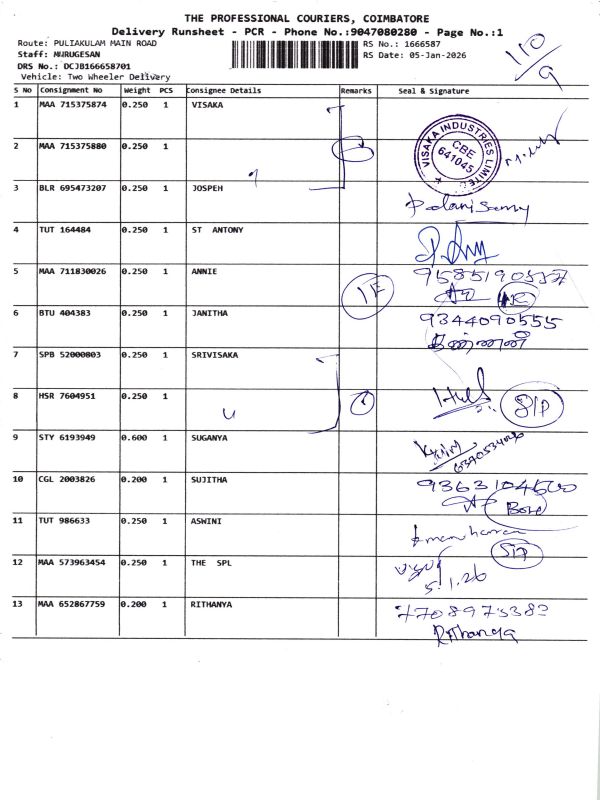 THE PROFESSIONAL COURIERS, COIMBATORE
Delivery Runsheet - PCR - Phone No.:9047080280 - Page No.:1
Route: PULIAKULAM MAIN ROAD
Staff: MURUGESAN
DRS No.: DCJB166658701
Vehicle: Two Wheeler Delivery
RS No.: 1666587
RS Date: 05-Jan-2026
110/9
S No Consignment No Weight PCS Consignee Details Remarks Seal & Signature
1 MAA 715375874 0.250 1 VISAKA
2 MAA 715375880 0.250 1
VISAKA INDUSTRIES LIMITED
CBE
641045
3 BLR 695473207 0.250 1 JOSPEH
Palanisamy
4 TUT 164484 0.250 1 ST ANTONY
5 MAA 711830026 0.250 1 ANNIE
6 BTU 404383 0.250 1 JANITHA 9344090555
7 SPB 52000803 0.250 1 SRIVISAKA
8 HSR 7604951 0.250 1
9 STY 6193949 0.600 1 SUGANYA
10 CGL 2003826 0.200 1 SUJITHA
11 TUT 986633 0.250 1 ASWINI
12 MAA 573963454 0.250 1 THE SPL
5.1.26
13 MAA 652867759 0.200 1 RITHANYA
Rithanya